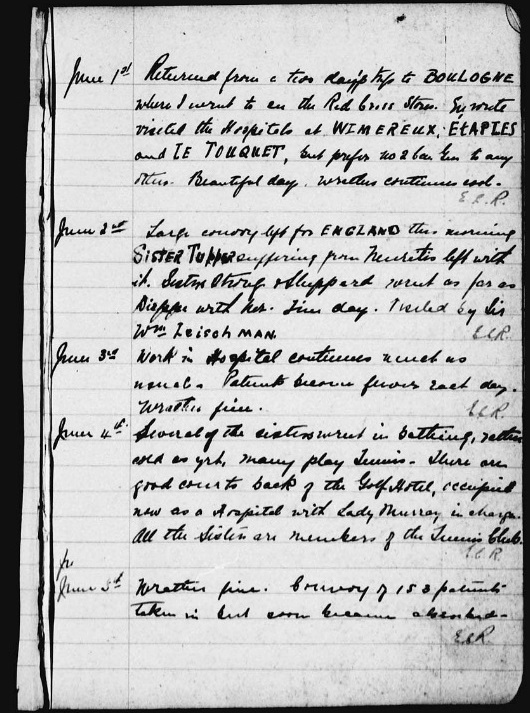 June 1st Returned from a two days trip to BOULOGNE
where I went to see the Red Cross Stores. En route
visited the Hospitals at WIMEREUX, ETAPLES
and LE TOUQUET, but prefer No 2 Can Gen to any
other. Beautiful day. Weather continues cool.
E.C.R.
June 2nd Large convoy left for ENGLAND this morning
SISTER TUPPER suffering from Neuritis left with
it. Sisters Strong & Sheppard went as far as
Dieppe with her. Fine day. Visited by Sir
Wm LEISCHMAN.
E.C.R.
June 3rd Work in Hospital continues much as
usual. Patients become fewer each day.
Weather fine.
E.C.R.
June 4th Several of the sisters went in bathing, rather
cold as yet, many play Tennis. There are
good courts back of the Golf Hotel, occupied
now as a Hospital with Lady Murray in charge.
All the Sisters are members of the Tennis Club.
E.C.R.
June 5th Weather fine. Convoy of 153 patients
taken in but soon became absorbed.
E.C.R.